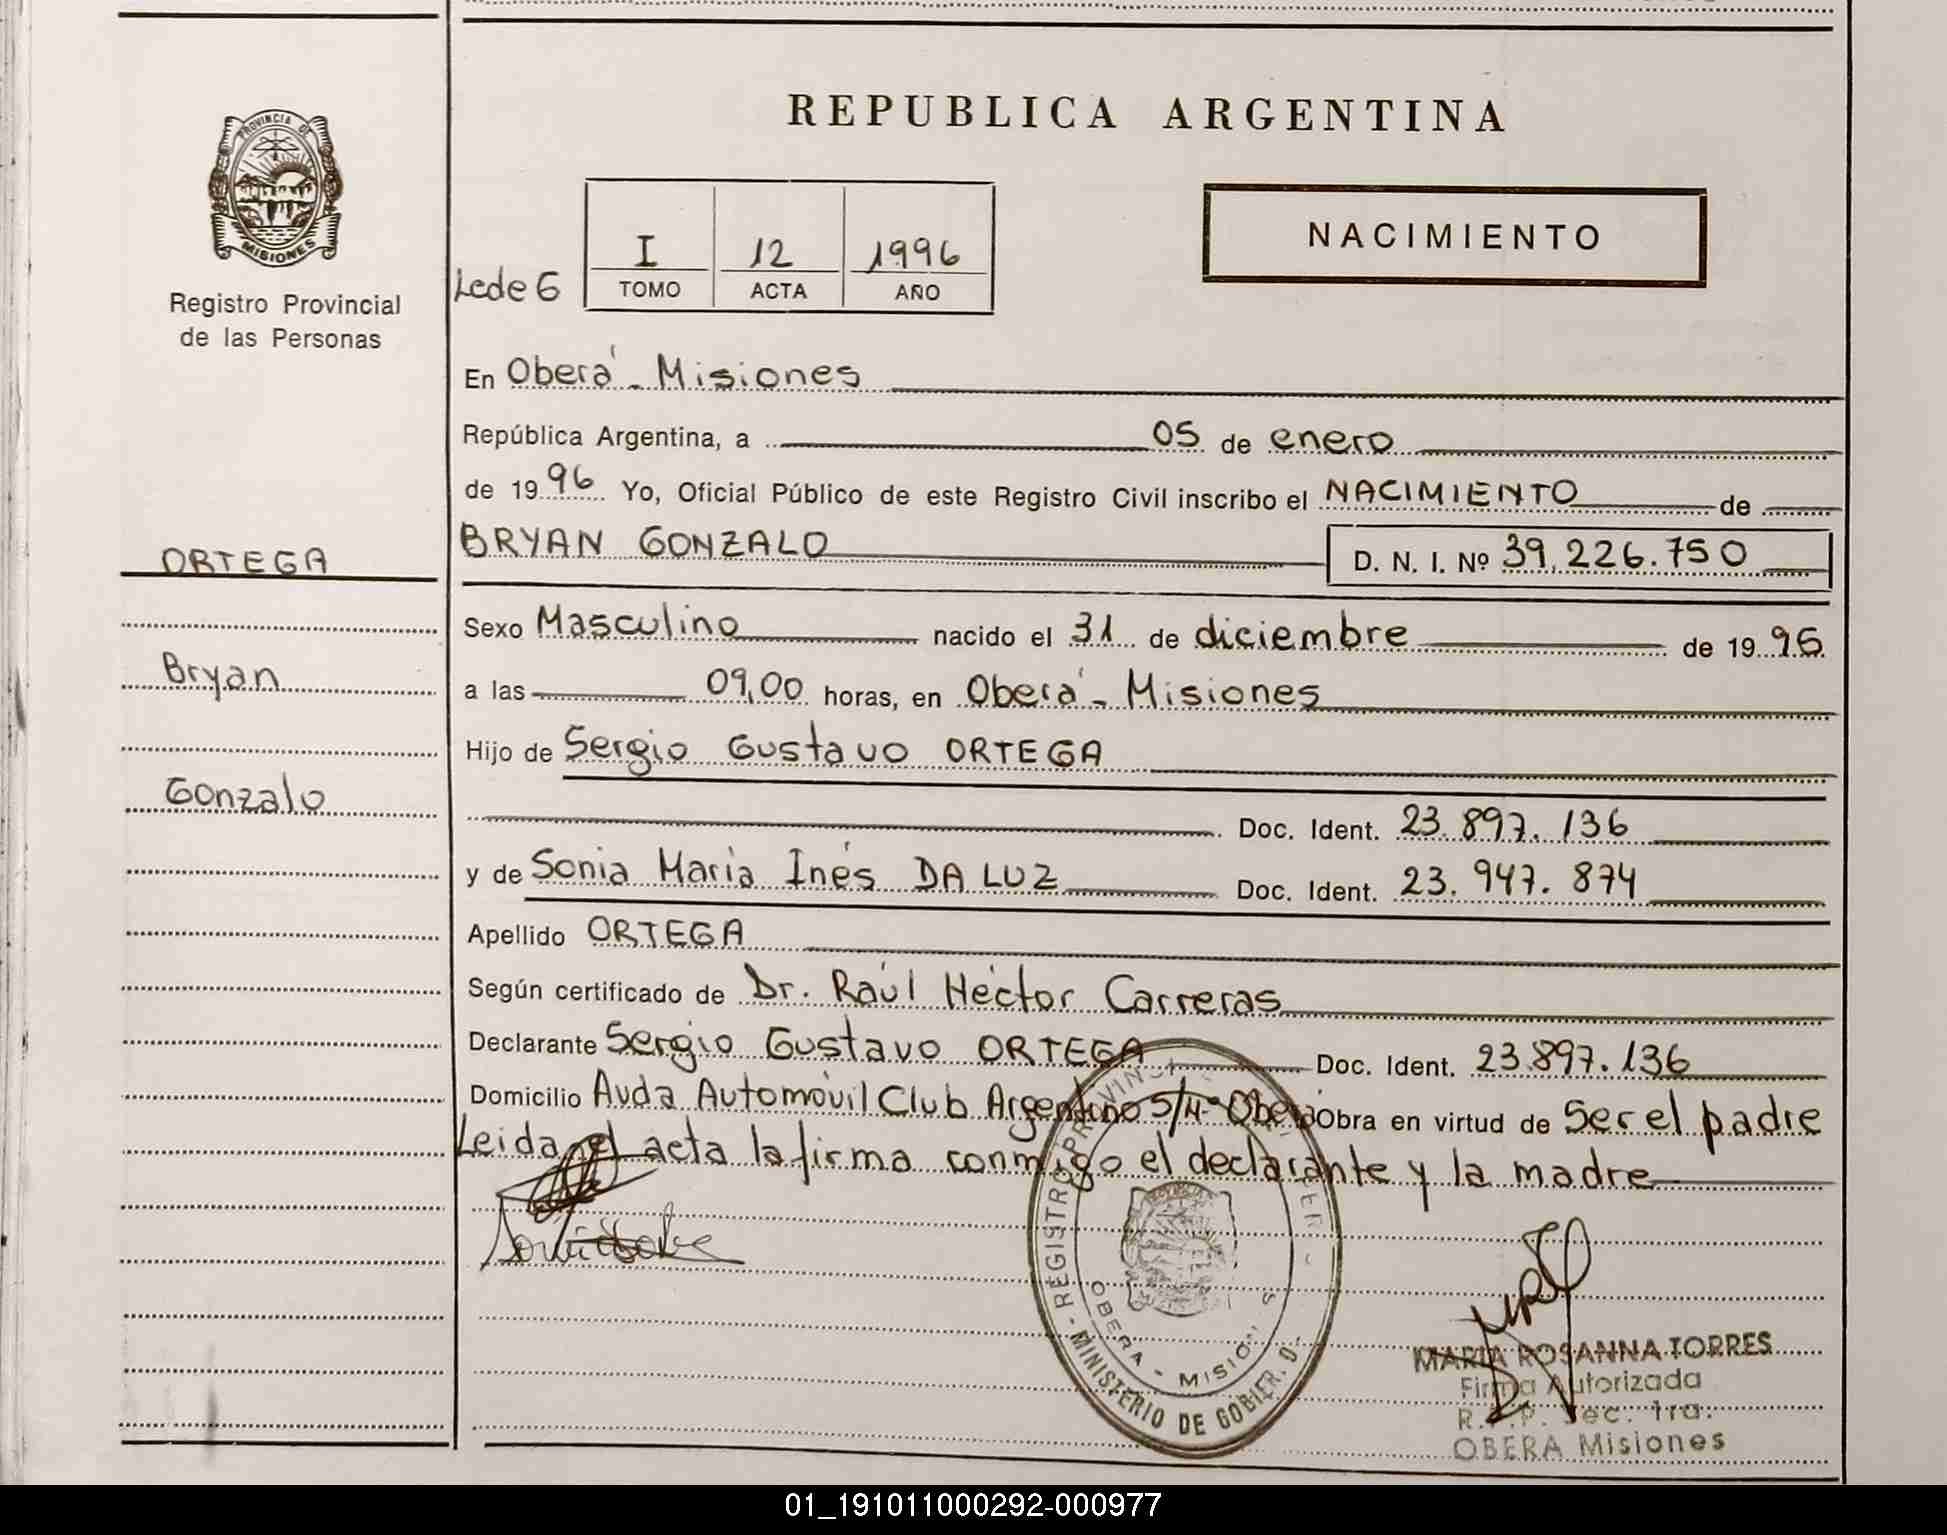 REPUBLICA ARGENTINA
PROVINCIA DE
MISIONES
Registro Provincial
de las Personas
NACIMIENTO
I 12 1996
TOMO ACTA AÑO
En Oberá - Misiones
República Argentina, a 05 de enero
de 1996 Yo, Oficial Público de este Registro Civil inscribo el NACIMIENTO de
BRYAN GONZALO D. N. I. Nº 39.226.750
ORTEGA
Bryan
Gonzalo
Sexo Masculino nacido el 31 de diciembre de 1995
a las 09,00 horas, en Oberá - Misiones
Hijo de Sergio Gustavo ORTEGA
Doc. Ident. 23.897.136
y de Sonia María Inés DA LUZ Doc. Ident. 23.947.874
Apellido ORTEGA
Según certificado de Dr. Raúl Héctor Carreras
Declarante Sergio Gustavo ORTEGA Doc. Ident. 23.897.136
Domicilio Avda Automóvil Club Argentino S/Nº Oberá Obra en virtud de Ser el padre
Leida el acta la firma conmigo el declarante y la madre
REGISTRO PROVINC
OBERA - MISION S
MINISTERIO DE GOBIER
MARIA ROSANNA TORRES
Firma Autorizada
R.P.P. Sec. 1ra.
OBERA Misiones
01_191011000292-000977